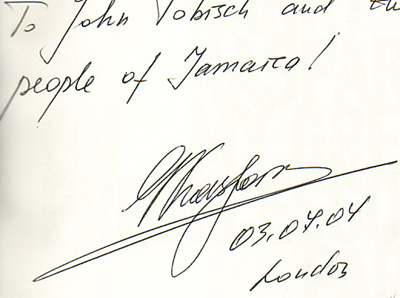 To John Tobisch and the
people of Jamaica!
03.04.04
London